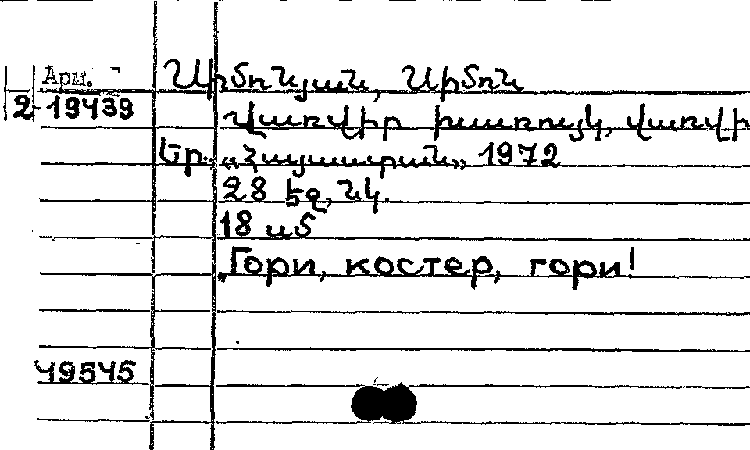 Арм. Սիմոնյան, Սիմոն
2-19439 Վառվիր խառույկ, վառվի
Եր. «Հայաստան», 1972
28 էջ, նկ.
18 սմ
Гори, костер, гори!
49545